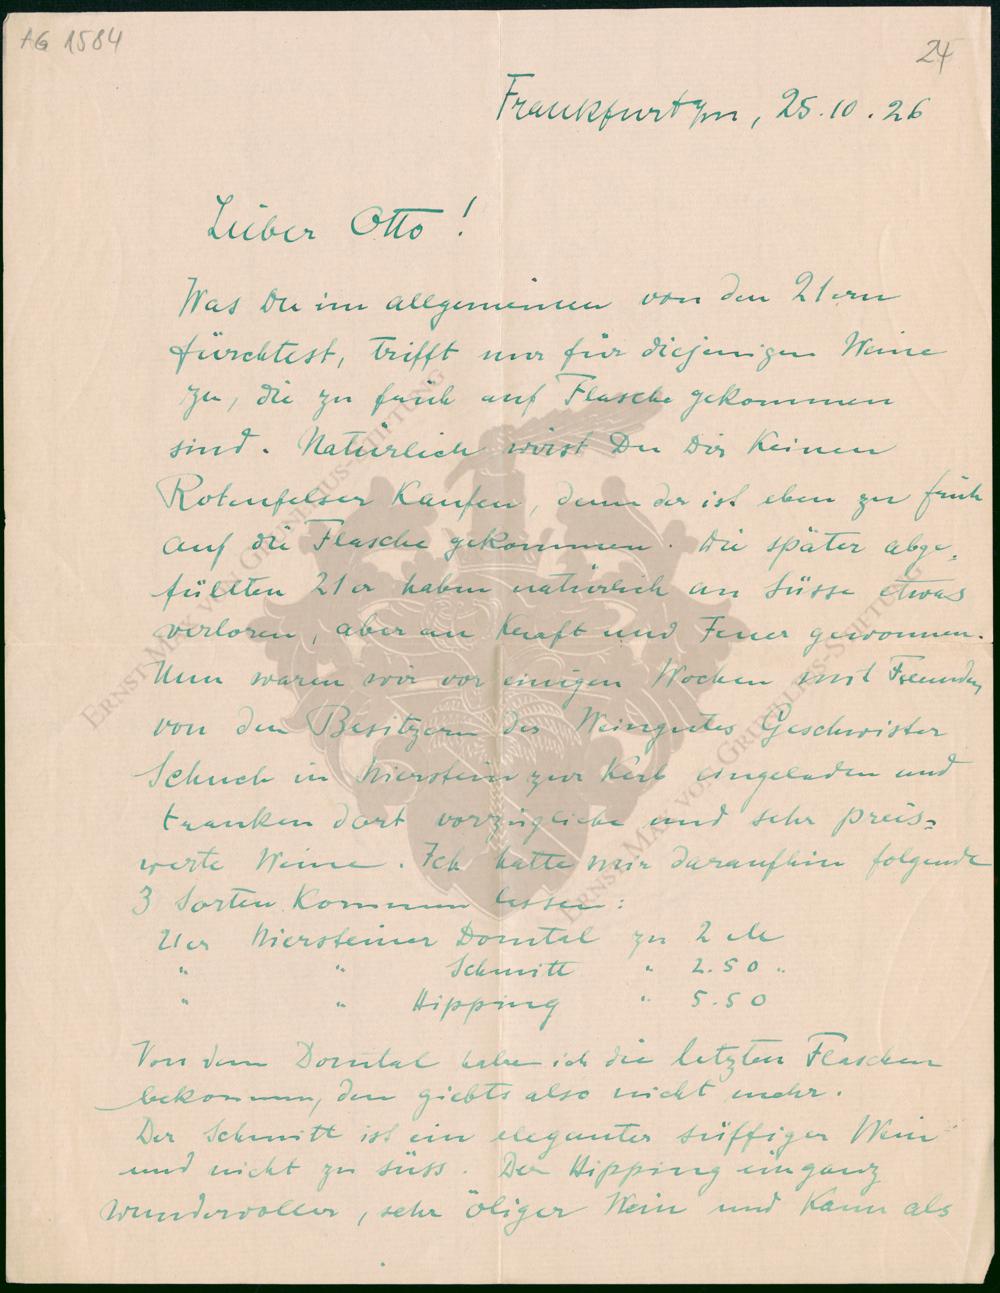 AG 1584
24
Frankfurt a/m, 25.10.26
Lieber Otto!
Was Du im allgemeinen von den 21ern
fürchtest, trifft nur für diejenigen Weine
zu, die zu früh auf Flasche gekommen
sind. Natürlich wirst Du Dir keinen
Rotenfelser kaufen, denn der ist eben zu früh
auf die Flasche gekommen. Die später abge-
füllten 21er haben natürlich an Süsse etwas
verloren, aber an Kraft und Feuer gewonnen.
Nun waren wir vor einigen Wochen mit Freunden
von den Besitzern des Weingutes Geschwister
Schuch in Nierstein zur Kerb eingeladen und
tranken dort vorzügliche und sehr preis-
werte Weine. Ich hatte mir daraufhin folgende
3 Sorten kommen lassen:
21er Niersteiner Domtal zu 2 M
" " Schmitt " 2.50 "
" " Hipping " 5.50
Von dem Domtal habe ich die letzten Flaschen
bekommen, den giebts also nicht mehr.
Der Schmitt ist ein eleganter süffiger Wein
und nicht zu süss. Der Hipping ein ganz
wundervoller, sehr öliger Wein und kann als
ERNST MAX VON GRUNELIUS-STIFTUNG
ERNST MAX VON GRUNELIUS-STIFTUNG